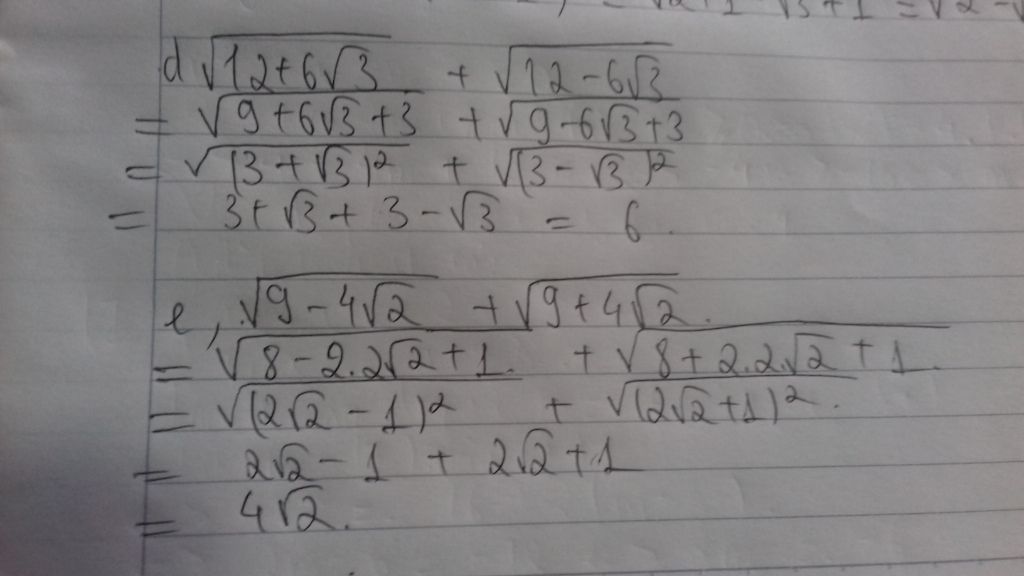 = √2+1 - √3+1 = √2 -
d √(12+6√3) + √(12-6√3)
= √(9+6√3+3) + √(9-6√3+3)
= √((3+√3)²) + √((3-√3)²)
= 3+√3+3-√3 = 6.
e, √(9-4√2) + √(9+4√2).
= √(8-2.2√2+1.) + √(8+2.2.√2+1.)
= √((2√2-1)²) + √((2√2+1)²).
= 2√2-1 + 2√2+1
= 4√2.